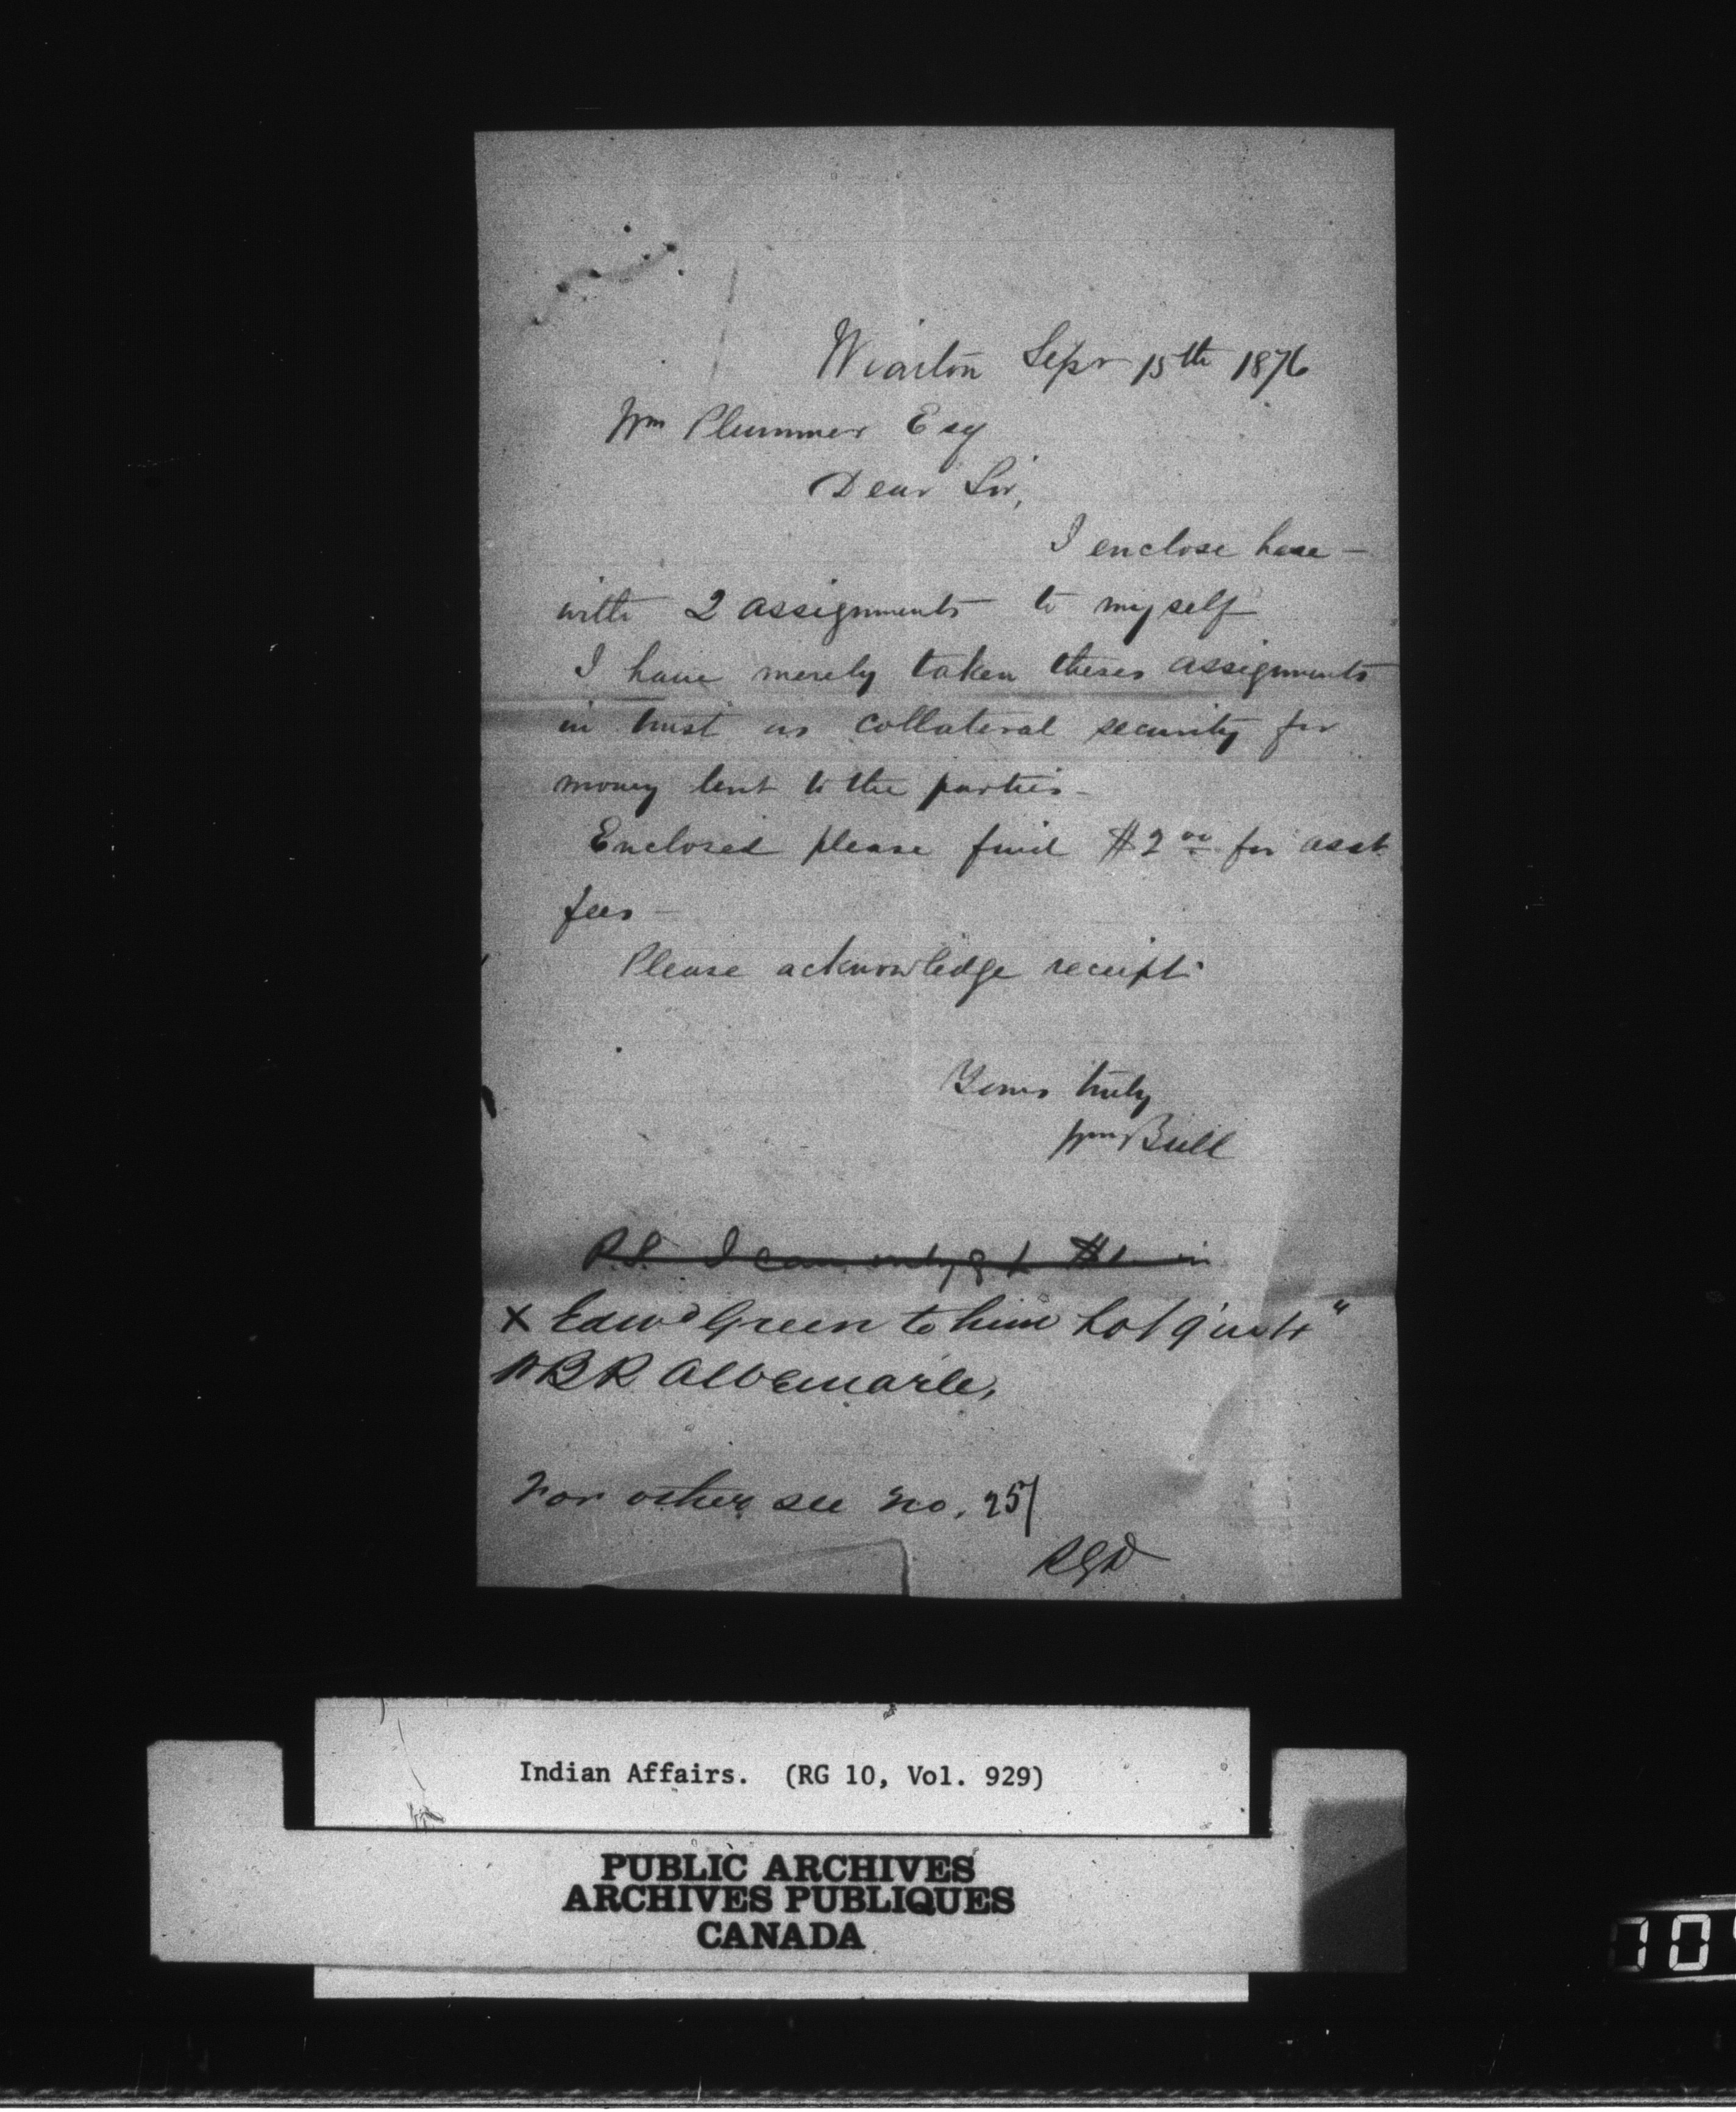 Wiarton Sepr 15th 1876
Wm Plummer Esq
Dear Sir,
I enclose here-
with 2 assignments to myself
I have merely taken theses assignments
in trust as collateral security for
money lent to the parties-
Enclosed please find $2 00 for asst
fees-
Please acknowledge receipt
Yours truly
Wm Bull
P.S. I can only get $1 in
X Edwd Green to him Lot 9 in 4"
BR Albemarle,
For other see no. 25/
Indian Affairs. (RG 10, Vol. 929)
PUBLIC ARCHIVES
ARCHIVES PUBLIQUES
CANADA